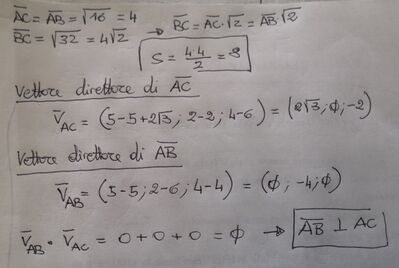 AC = AB = √16 = 4
BC = √32 = 4√2 → BC = AC·√2 = AB·√2
S = 4·4/2 = 8
Vettore direttore di AC
V̄AC = (5-5+2√3; 2-2; 4-6) = (2√3; ϕ; -2)
Vettore direttore di AB
V̄AB = (5-5; 2-6; 4-4) = (ϕ; -4; ϕ)
V̄AB • V̄AC = 0+0+0 = ϕ → AB ⊥ AC